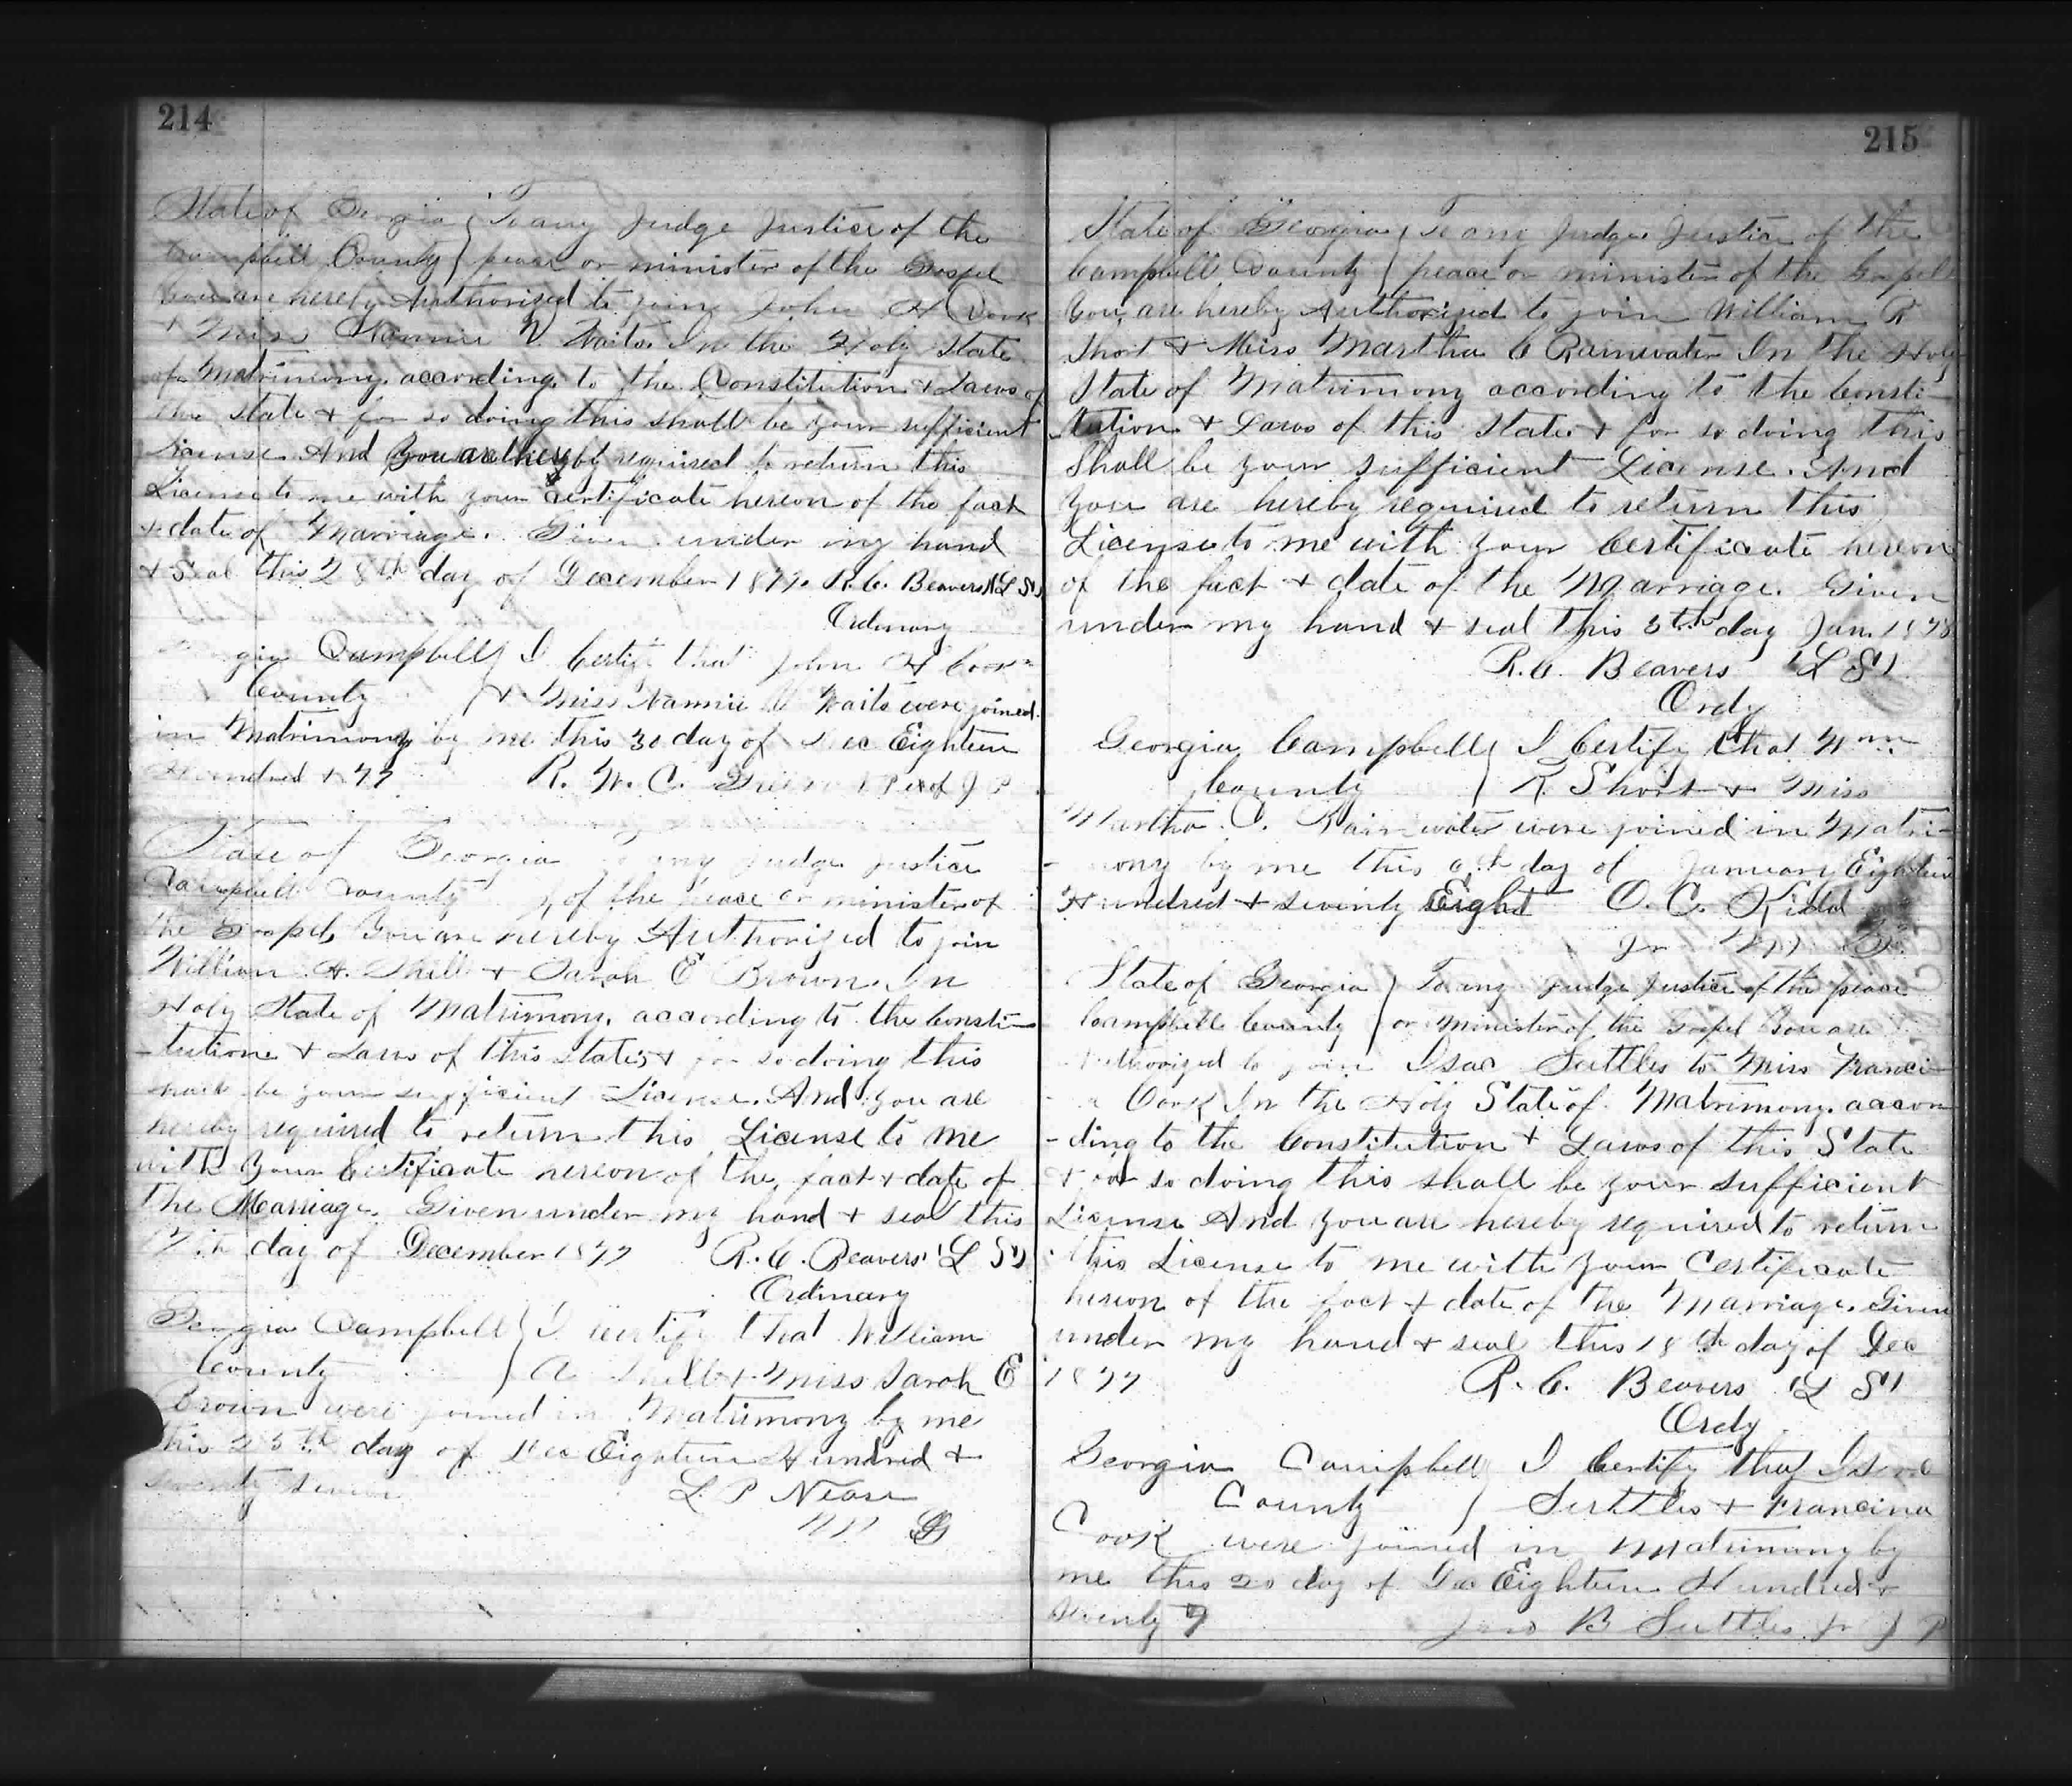 214
State of Georgia } To any Judge Justice of the
Campbell County } peace or minister of the Gospel
You are hereby Authorized to join John H Cook
+ Miss Nannie V. Waits. In the Holy State
of Matrimony. according to the Constitution + Laws of
this state + for so doing this shall be your sufficient
License And you are hereby required to return this
License to me with your certificate hereon of the fact
+ date of Marriage. Given under my hand
+ Seal this 28th day of December 1877. R.C. Beavers (L S)
Ordinary
gia Campbell } I Certify that John H Cook
County } + Miss Nannie Waits were joined
in Matrimony by me this 30 day of Dec Eighteen
Hundred + 77 R. W. C. J P
State of Georgia To any Judge Justice
Campbell County } of the peace or minister of
the Gospel, You are hereby Authorized to join
William A. Shell + Sarah E Brown. In
Holy State of Matrimony, according to the Consti-
-tution + Laws of this State, + for so doing this
shall be your sufficient License. And you are
hereby required to return this License to me
with your Certificate hereon of the, fact + date of
the Marriage. Given under my hand + seal this
17th day of December 1877 R. C. Beavers (L S)
Ordinary
Georgia Campbell } I certify that William
County } A Shell + Miss Sarah E
Brown were joined in Matrimony by me
this 25th day of Dec Eighteen Hundred +
seventy seven
L. P Nease
M G
215
State of Georgia } To any Judge Justice of the
Campbell County } peace or minister of the Gospel
You are hereby Authorized to join William R
Short + Miss Martha C Rainwater In the Holy
State of Matrimony according to the Consti-
tution + Laws of this State + for so doing this
Shall be your sufficient License. And
you are hereby required to return this
License to me with your Certificate hereon
of the fact + date of the Marriage. Given
under my hand + seal this 5th day Jan. 1878
R. C. Beavers (L S)
Ordy
Georgia Campbell } I Certify that Wm
County } R. Short + Miss
Martha C. Rainwater were joined in Matri-
-mony by me this 6th day of January Eighteen
Hundred + seventy Eight O. C. Kidd
Jr M G
State of Georgia } To any Judge Justice of the peace
Campbell County } or minister of the Gospel You are
Authorized to join Isac Suttles to Miss Franci-
-a Cook In the Holy State of Matrimony. accor
-ding to the Constitution + Laws of this State
+ for so doing this shall be your sufficient
License And you are hereby required to return
this License to me with your Certificate
hereon of the fact + date of the Marriage. Given
under my hand + seal this 18th day of Dec
1877 R. C. Beavers (L S)
Ordy
Georgia Campbell } I Certify that
County } Suttles + Francina
Cook were joined in Matrimony by
me this 20 day of Dec Eighteen Hundred +
seventy 7 Jno B Suttles Jr J P